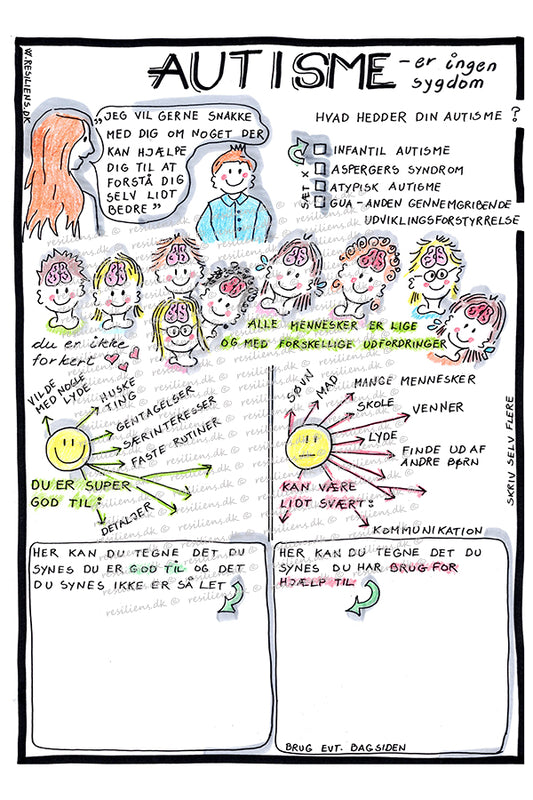 W.RESILIENS.DK
AUTISME - er ingen
sygdom
"JEG VIL GERNE SNAKKE
MED DIG OM NOGET DER
KAN HJÆLPE
DIG TIL AT
FORSTÅ DIG
SELV LIDT
BEDRE"
HVAD HEDDER DIN AUTISME?
SÆT X
INFANTIL AUTISME
ASPERGERS SYNDROM
ATYPISK AUTISME
GUA - ANDEN GENNEMGRIBENDE
UDVIKLINGSFORSTYRRELSE
ALLE MENNESKER ER LIGE
OG MED FORSKELLIGE UDFORDRINGER
du er ikke
forkert
VILDE
MED NOGLE
LYDE
HUSKE
TING
GENTAGELSER
SÆRINTERESSER
FASTE RUTINER
DETALJER
DU ER SUPER
GOD TIL:
SØVN
MAD
MANGE MENNESKER
SKOLE
VENNER
LYDE
FINDE UD AF
ANDRE BØRN
KOMMUNIKATION
KAN VÆRE
LIDT SVÆRT:
SKRIV SELV FLERE
HER KAN DU TEGNE DET DU
SYNES DU ER GOD TIL OG DET
DU SYNES IKKE ER SÅ LET
HER KAN DU TEGNE DET DU
SYNES DU HAR BRUG FOR
HJÆLP TIL
BRUG EVT. BAGSIDEN
resiliens.dk ©